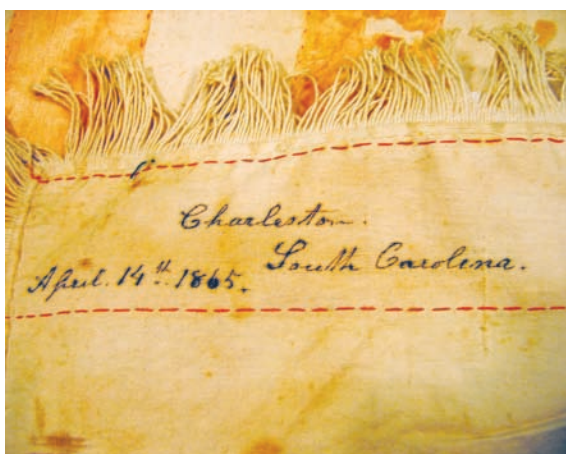 Charleston.
South Carolina.
April. 14th. 1865.